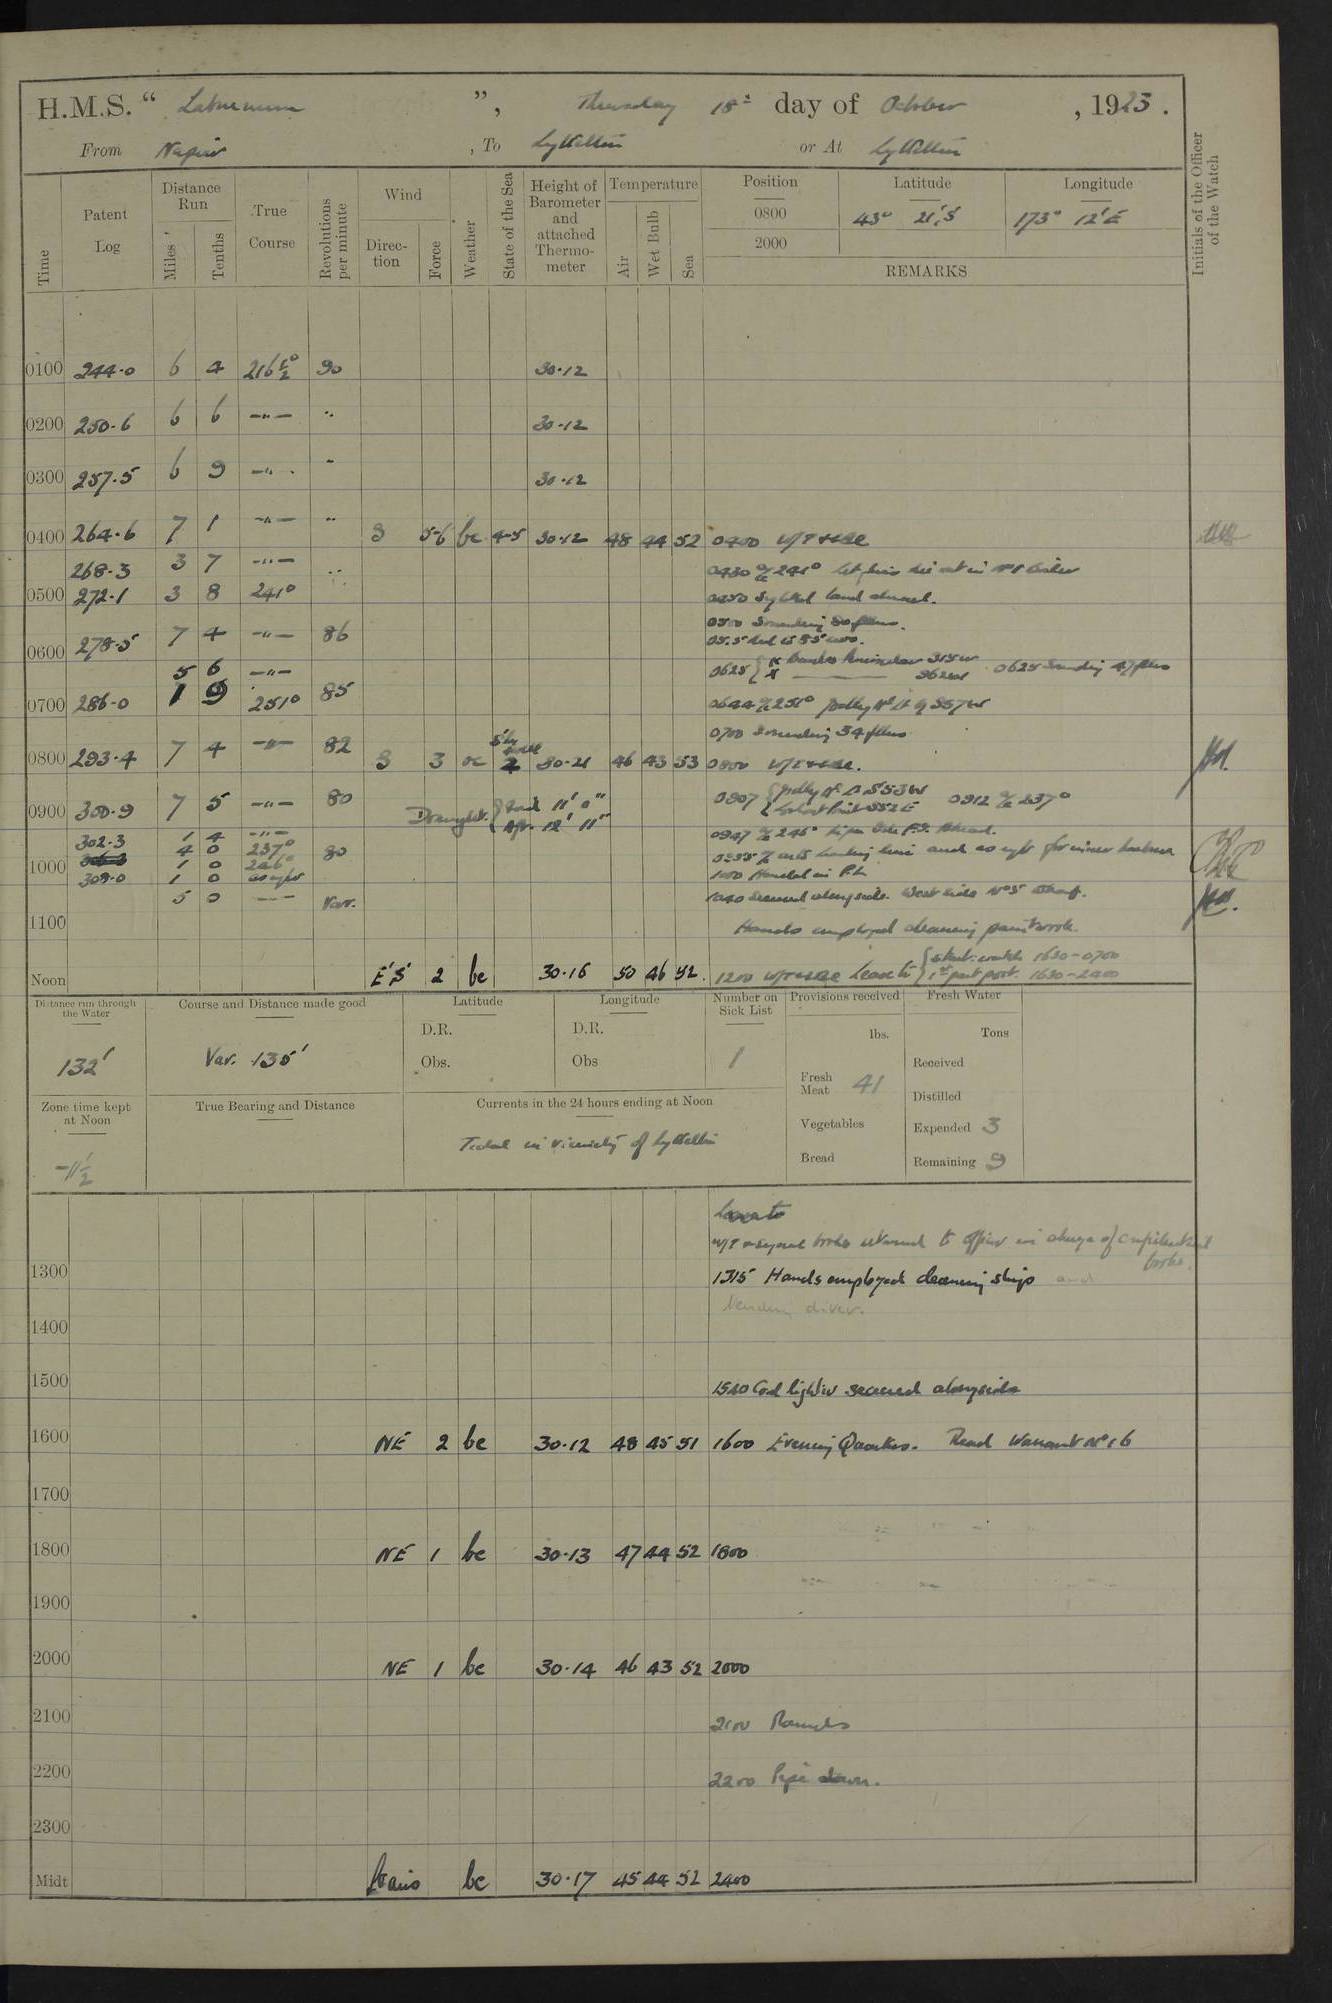 H.M.S. " Laburnum ", Thursday 18th day of October , 1923.
From Napier , To Lyttelton or At Lyttelton
Time
Patent Log
Distance Run
Miles
Tenths
True Course
Revolutions per minute
Wind
Direc-tion
Force
Weather
State of the Sea
Height of Barometer and attached Thermo-meter
Temperature
Air
Wet Bulb
Sea
Position
Latitude
Longitude
0800 43° 21' S 173° 12' E
2000
REMARKS
Initials of the Officer of the Watch
0100 244.0 6 4 216½° 90 30.12
0200 250.6 6 6 -"- " 30.12
0300 257.5 6 9 -"- " 30.12
0400 264.6 7 1 -"- " S 5-6 bc 4-5 30.12 48 44 52 0400
268.3 3 7 -"- " 0430 a/c 241°
0500 272.1 3 8 241° 0450 Sighted land ahead.
0500 Sounding 50 fthms.
0600 278.5 7 4 -"- 86
5 6 -"- 0625 0625 Sounding 47 fthms
0700 286.0 1 9 251° 85 0644 a/c 251° Godley Hd Lt S57W
0700 Sounding 34 fthms
S'ly swell
0800 293.4 7 4 -"- 82 S 3 oc 2 30.21 46 43 53 0800
0900 300.9 7 5 -"- 80 Draught. { Ford 11' 0" 0907 { Godley Hd S53W 0912 a/c 237°
Aft. 12' 11"
302.3 1 4 -"- 0947 a/c 246°
4 0 237° 80
1000 1 0 246°
309.0 1 0 as reqd
5 0 -"- Var. 1040 Secured alongside. West side No 5 Wharf.
1100 Hands employed cleaning paintwork.
Noon E'S 2 bc 30.16 50 46 52 1200 Leave to { Starb: watch 1630-0700
1st part port. 1630-2400
Distance run through the Water
132'
Course and Distance made good
Var. 135'
Latitude
D.R.
Obs.
Longitude
D.R.
Obs
Number on Sick List
1
Provisions received
lbs.
Fresh Meat 41
Vegetables
Bread
Fresh Water
Tons
Received
Distilled
Expended 3
Remaining 9
Zone time kept at Noon
-11½
True Bearing and Distance
Currents in the 24 hours ending at Noon
Tidal in vicinity of Lyttelton
W/T & signal books returned to officer in charge of confidential books.
1300
1315 Hands employed cleaning ship and
tending diver.
1400
1500
1540 Coal lighter secured alongside
1600 NE 2 bc 30.12 48 45 51 1600 Evening Quarters. Read Warrant No 16
1700
1800 NE 1 bc 30.13 47 44 52 1800
1900
2000 NE 1 bc 30.14 46 43 52 2000
2100 2100 Rounds
2200 2200 Pipe down.
2300
Midt bc 30.17 45 44 52 2400